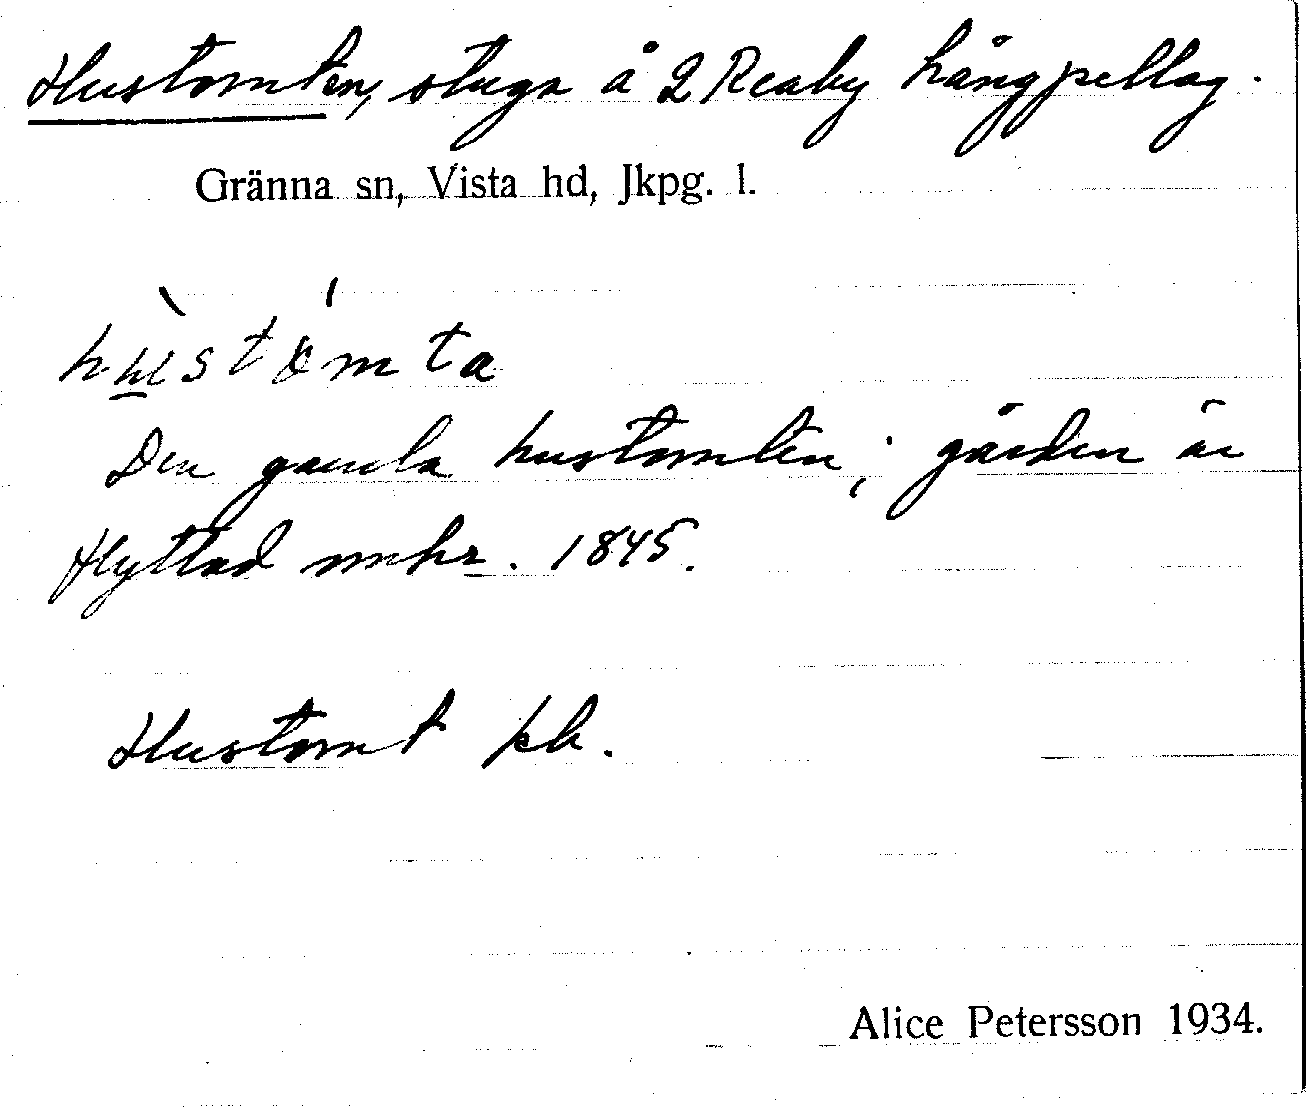 Hustomten, stuga å 2 Reaby
Gränna sn, Vista hd, Jkpg. l.
hùstómta
Den gamla hustomten; gården är
flyttad omkr. 1845.
Hustomt kb.
Alice Petersson 1934.